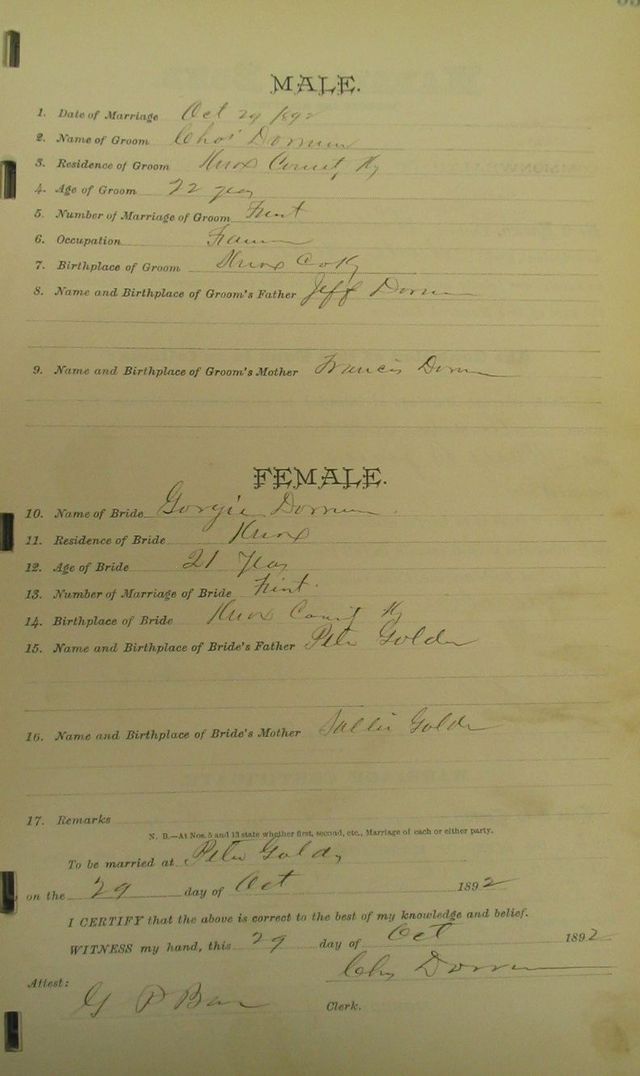 MALE.
1. Date of Marriage Oct 29 1892
2. Name of Groom Chas Dorman
3. Residence of Groom Knox County Ky
4. Age of Groom 22 years
5. Number of Marriage of Groom First
6. Occupation Farmer
7. Birthplace of Groom Knox Co Ky
8. Name and Birthplace of Groom's Father Jeff
9. Name and Birthplace of Groom's Mother Francis
FEMALE.
10. Name of Bride
11. Residence of Bride Knox
12. Age of Bride 21 Years
13. Number of Marriage of Bride First
14. Birthplace of Bride Knox County Ky
15. Name and Birthplace of Bride's Father Pete Golden
16. Name and Birthplace of Bride's Mother Sallie Golden
17. Remarks
N. B.—At Nos. 5 and 13 state whether first, second, etc., Marriage of each or either party.
To be married at Pete
on the 29 day of Oct 1892
I CERTIFY that the above is correct to the best of my knowledge and belief.
WITNESS my hand, this 29 day of Oct 1892
Chas Dorman
Attest:
G P Clerk.